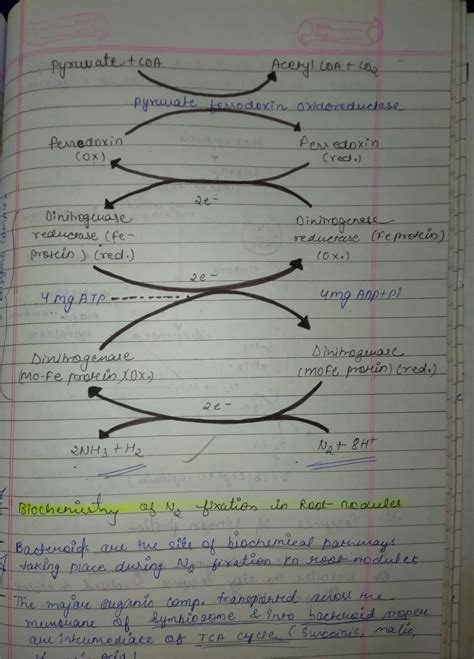 Pyruvate + COA    Acetyl COA + CO2
Pyruvate ferrodoxin oxidoreductase
Ferrodoxin    Ferrodoxin
(Ox)    (red.)
2e-
Dinitrogenase    Dinitrogenase
reductase (Fe-    reductase (Fe protein)
protein) (red.)    (Ox.)
2e-
4 mg ATP    4mg ADP+Pi
Dinitrogenase    Dinitrogenase
(Mo-Fe protein)(Ox.)    (MoFe protein) (red.)
2e-
2NH3 + H2    N2 + 8H+
Biochemistry of N2 fixation in Root nodules
Bacteroids are the site of biochemical pathways
taking place during N2 fixation in root nodules
The major organic comp. transported across the
membrane of symbiosome & into bacteroid proper
are intermediate of TCA cycle (Succinic, malic,
Acid)